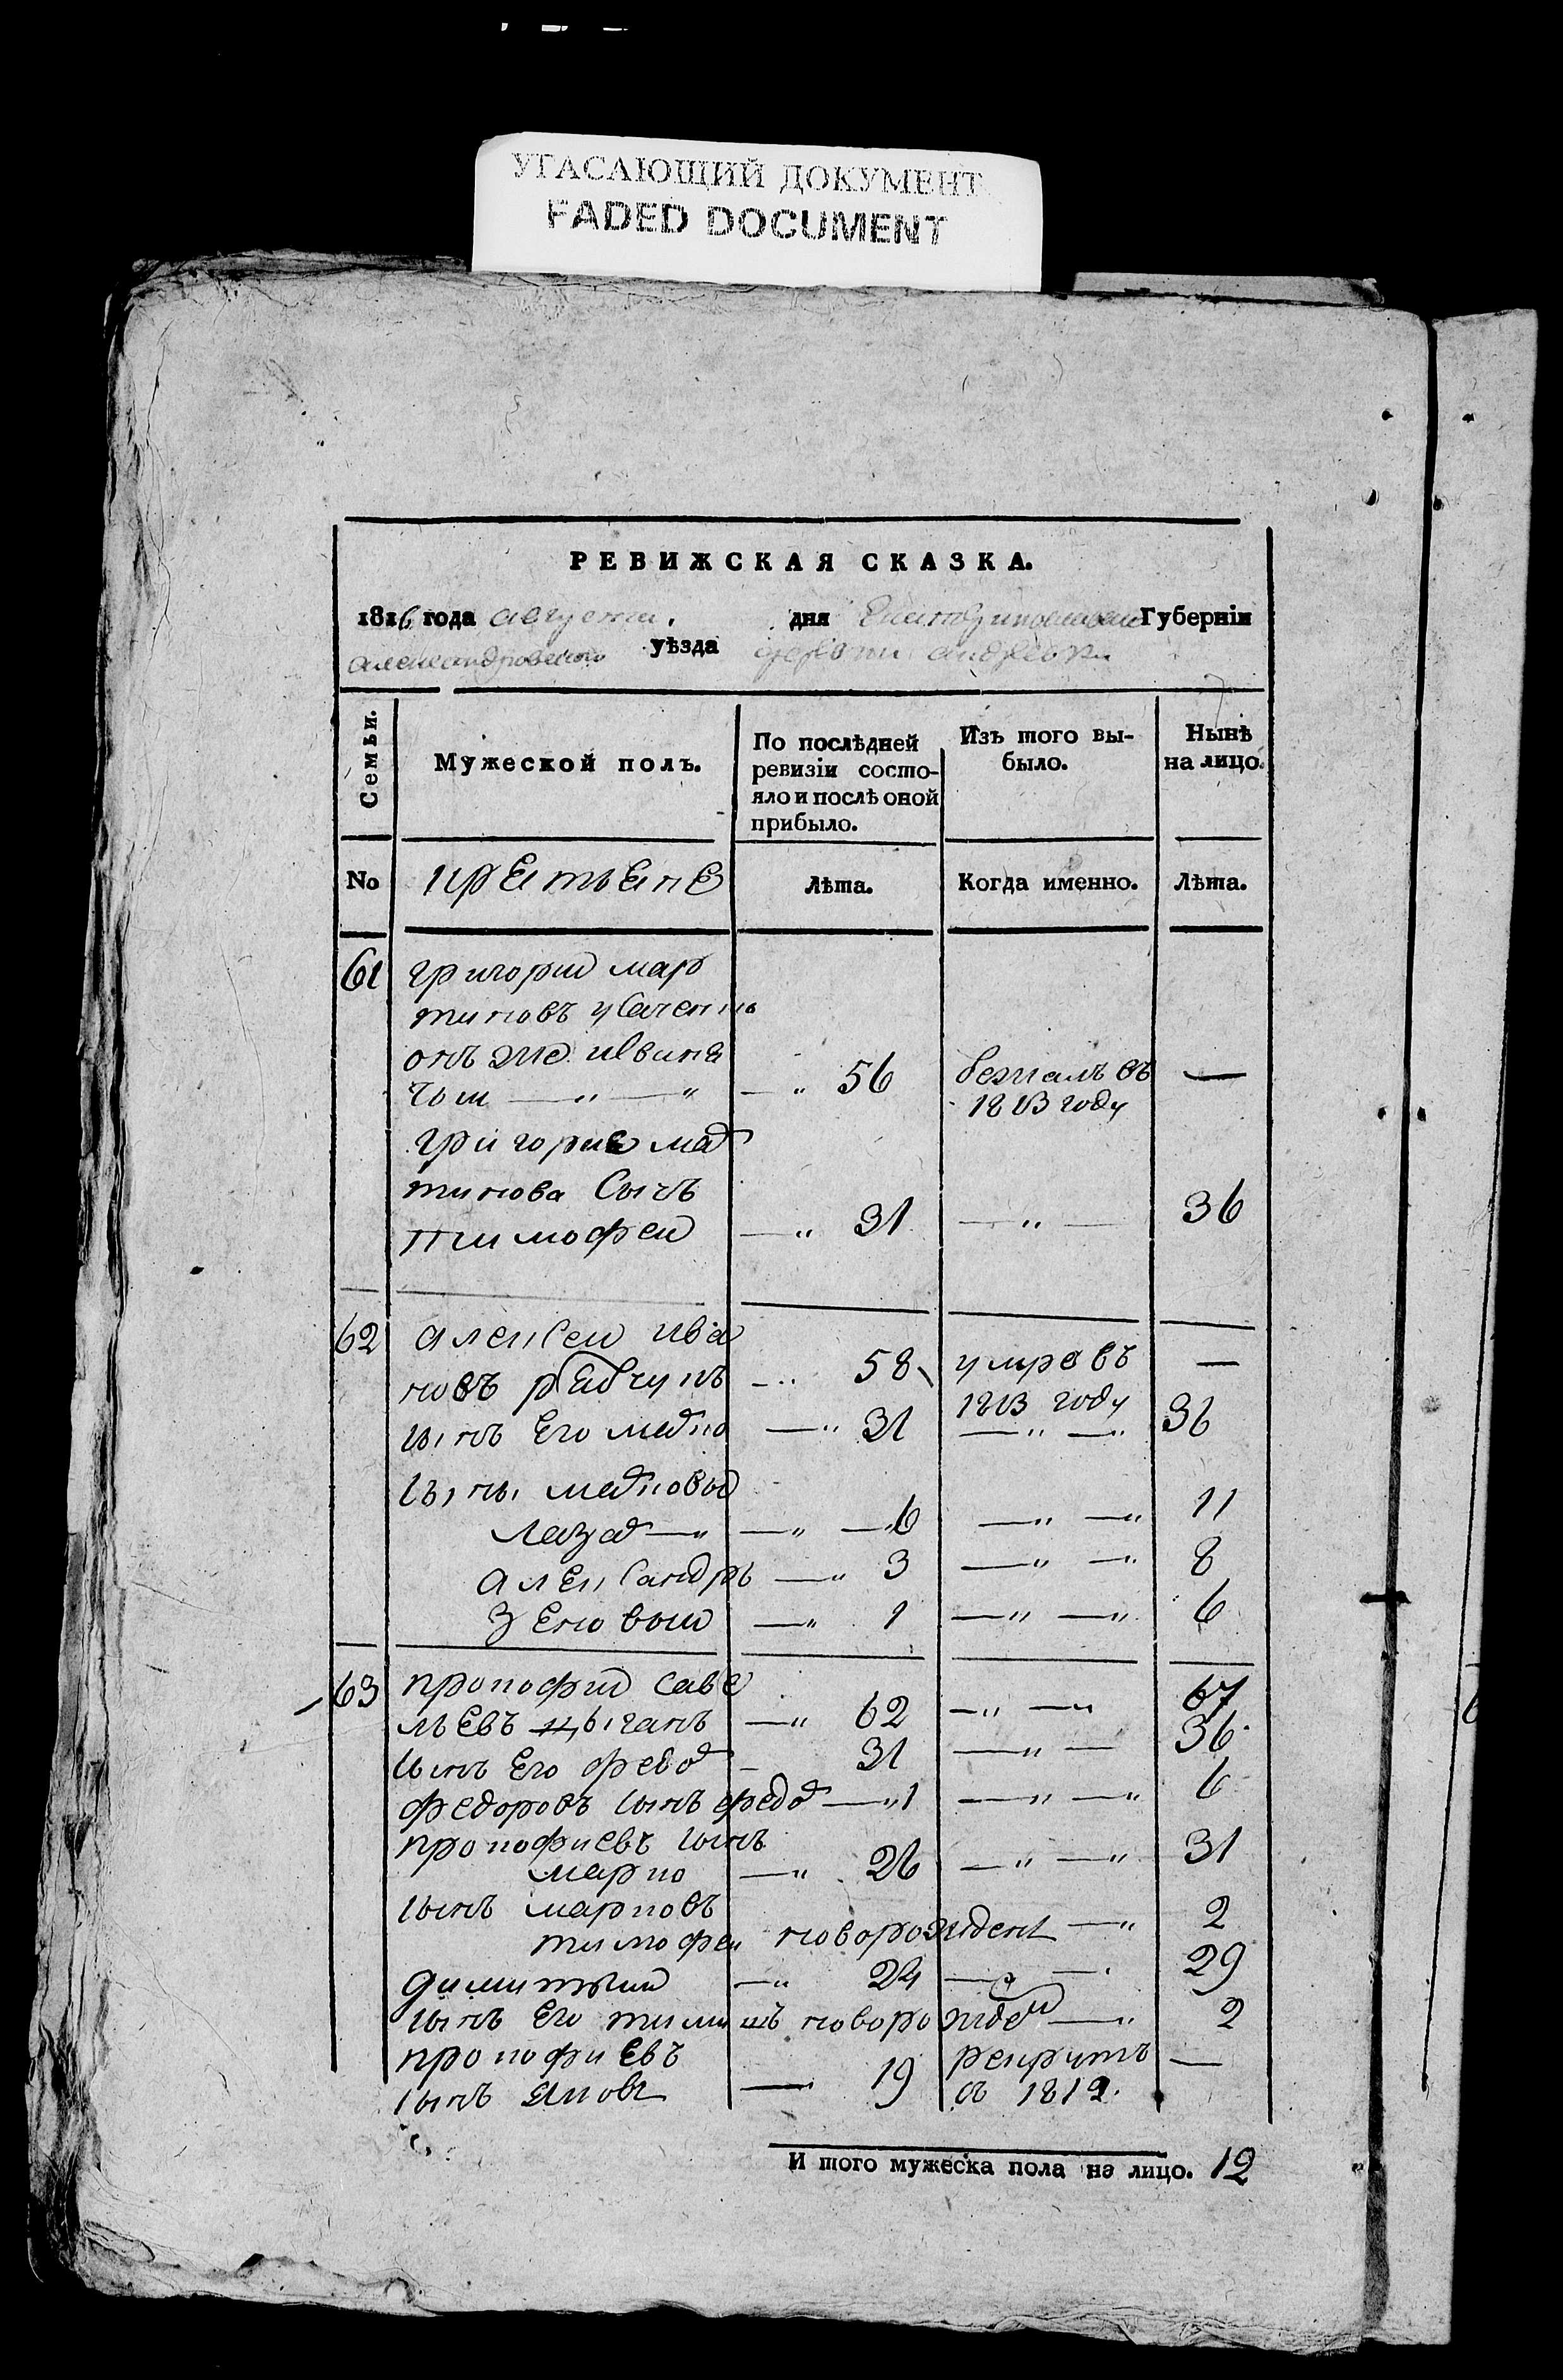 УГАСАЮЩИЙ ДОКУМЕНТ
FADED DOCUMENT
РЕВИЖСКАЯ СКАЗКА.
1816 года августа дня Екатеринославской Губерніи
александровского уѣзда деревни андреевки
Семьи.
Мужеской полъ.
По послѣдней
ревизіи состо-
яло и послѣ оной
прибыло.
Изъ того вы-
было.
Нынѣ
на лицо.
No
крестьяне
лѣта.
Когда именно.
Лѣта.
61 григорий мар
тиновъ
онъ же
56 бежалъ въ —
1813 году
григорие мар
тинова Сынъ
тимофей 31 36
62 алексей ива
новъ рябчунъ 58 умре въ —
1813 году
сынъ Его марко 31 36
сыны марковы
лазар 6 11
александръ 3 8
зеновий 1 6
63 прокофий саве
льевъ цыганъ 62 67
сынъ Его федор 31 36
федоровъ сынъ федор 1 6
прокофиевъ сынъ
марко 26 31
сынъ марковъ
тимофей новорожден 2
димитрий 24 29
сынъ Его новорожден 2
прокофиевъ рекрутъ —
сынъ Яковъ 19 въ 1812.
И того мужеска пола на лицо. 12